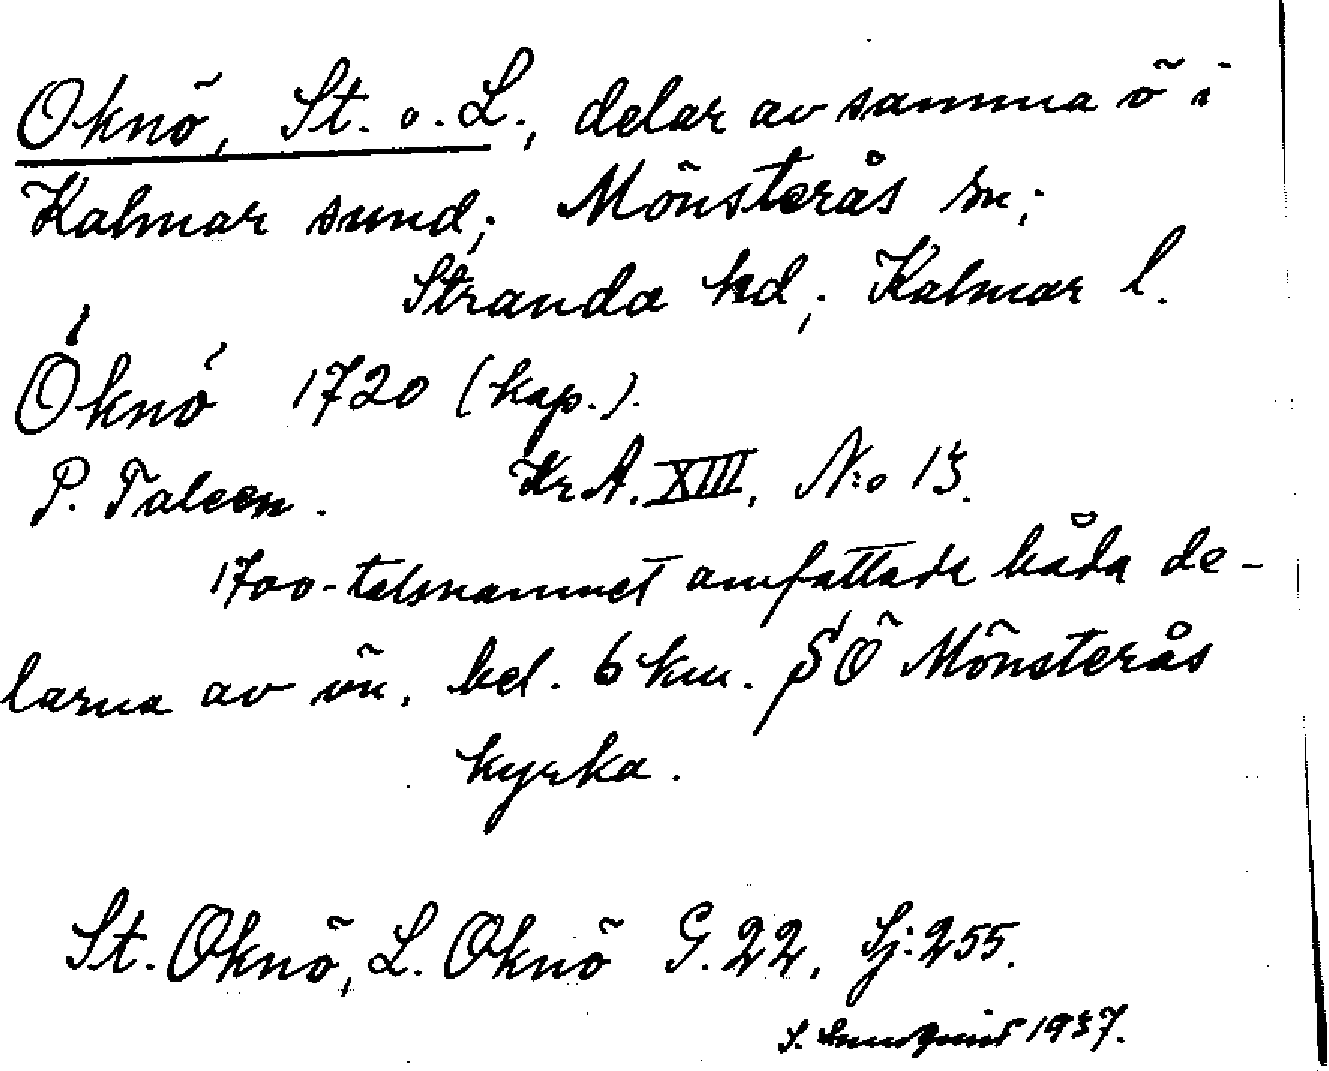 Oknö, St. o. L., delar av samma ö i
Kalmar sund; Mönsterås sn;
Stranda hd; Kalmar l.
Öknö 1720 (kap.).
P. Taleen. Kr A. XIII, N:o 13.
1700-talsnamnet omfattade båda de-
larna av ön, bel. 6 km. SÖ Mönsterås
kyrka.
St. Oknö, L. Oknö G. 22. Sj: 255.
1937.